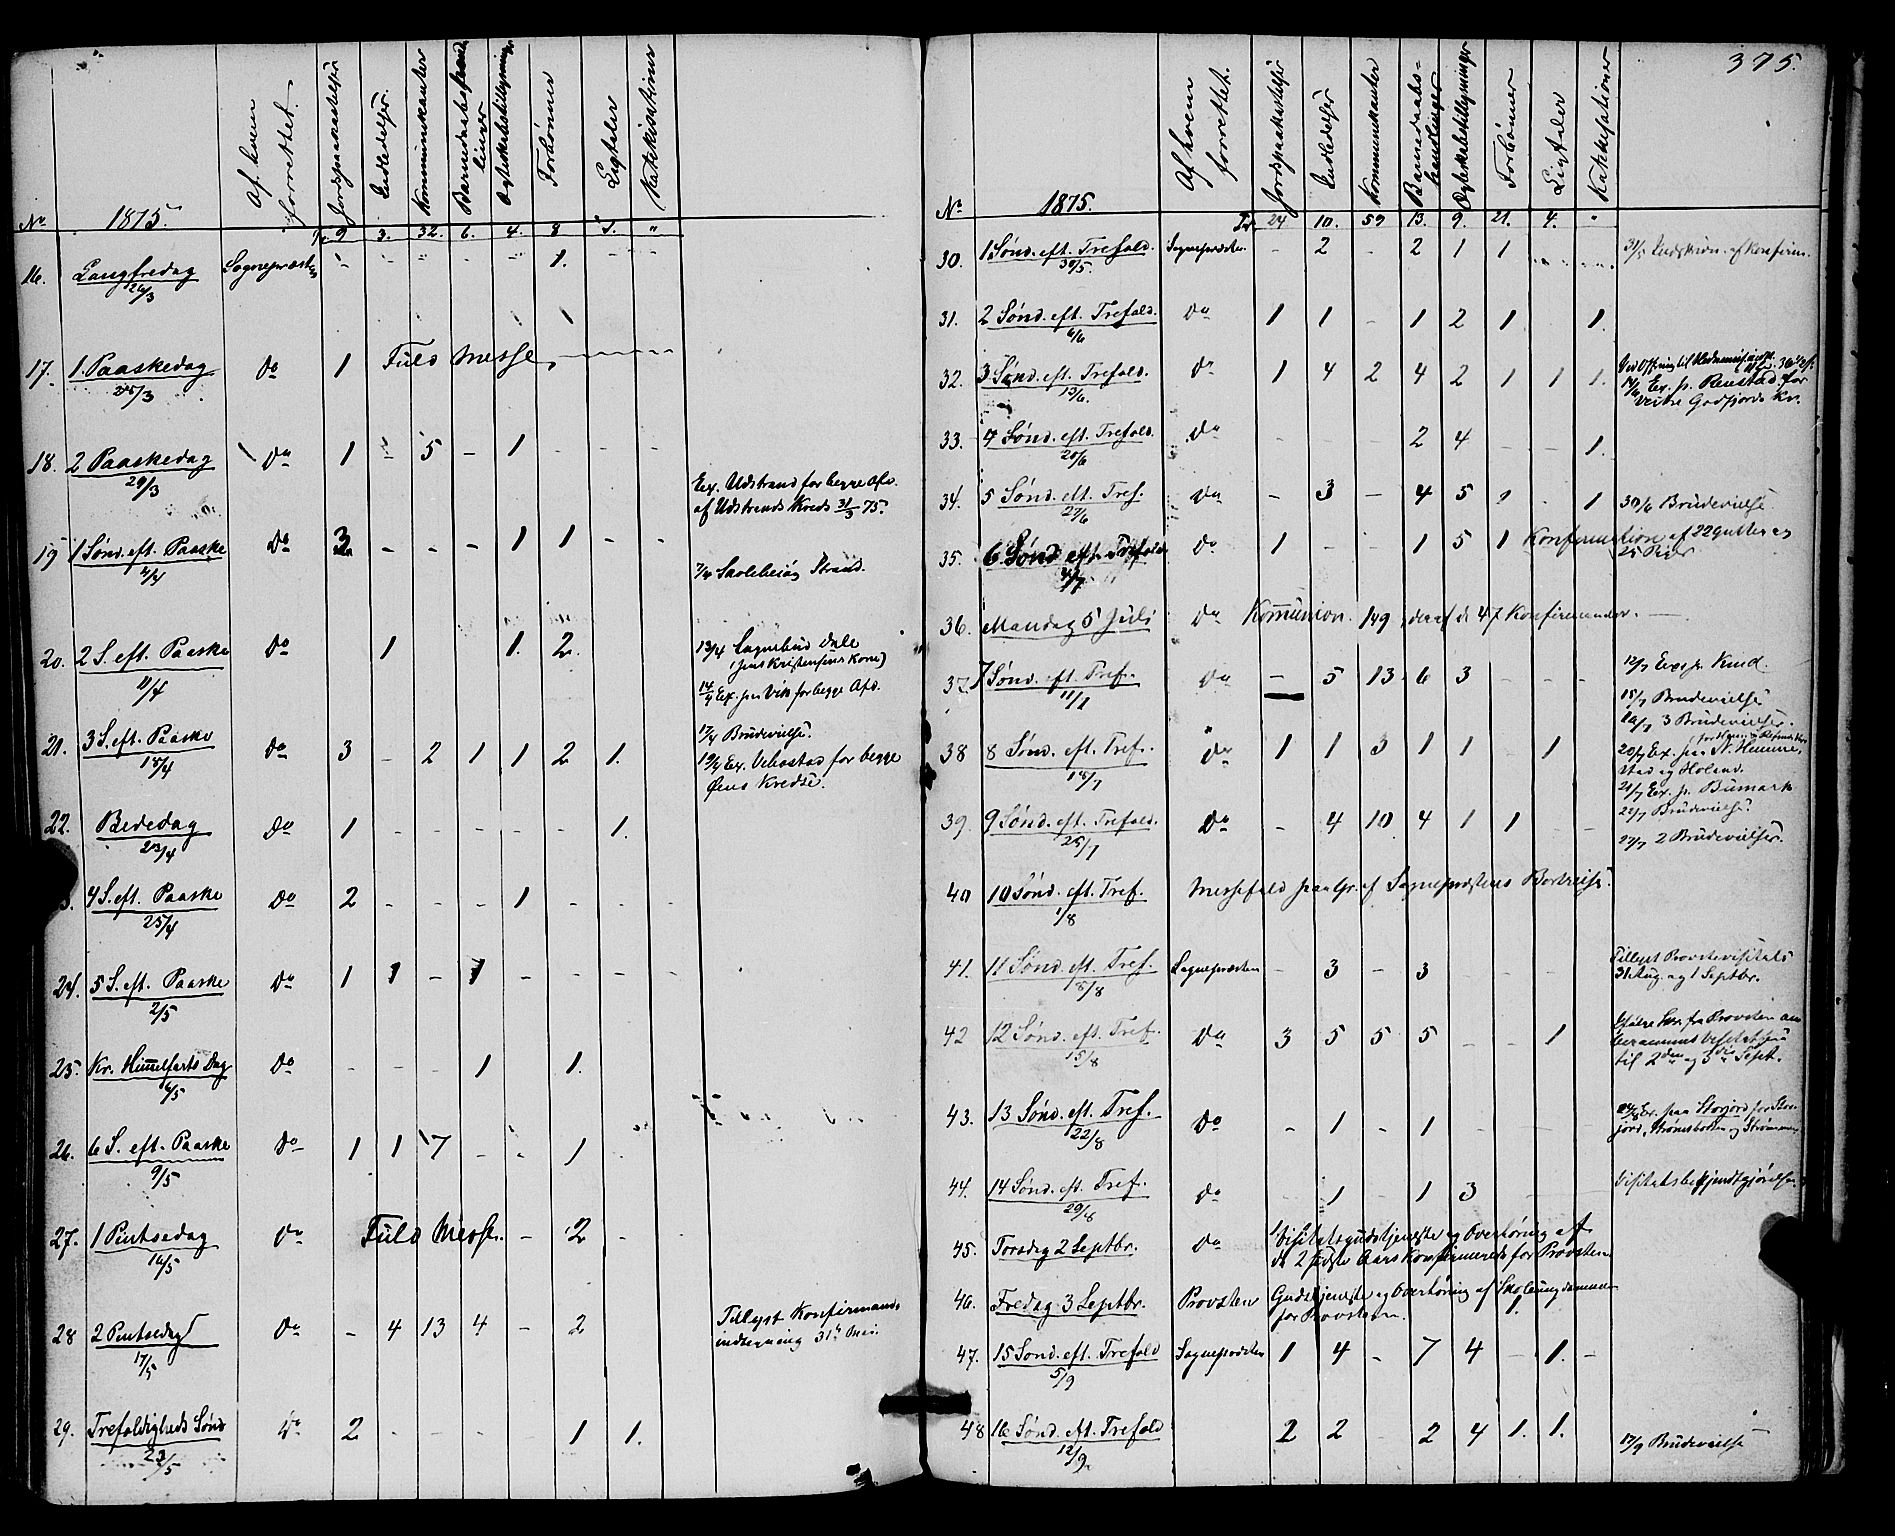 No. 1875. Af hvem forrettet. Jordpaakastelser Indledelser. Kommunikanter Barnedaabs Ægteskabstillysninger Forbönner Ligtaler Katekisationer
Tr. 9 3. 32. 6. 4. 8 "
16. Langfredag 26/3 Sognepræsten " - " " " " 1. " " "
17. 1. Paaskedag Do 1 Fuld Messe,
18. 2 Paaskedag 29/3 Do 1 - 5 - 1 - - -
Ex. Udstrand for begge Afd.
af Udstrands Kreds 31/3 75.
19 1 Sønd. eft. Paaske 4/4 Do - - - 1 1 - -
20. 2 S. eft. Paaske 11/4 Do 1 1. 2.
13/4 Sognebud Dale
(Jens Kristensens Kone)
14/4 Ex. paa Vik for begge Afd.
21. 3 S. eft. Paaske 18/4 Do 3 - 2 1 1 2 1.
17/4 Brudevielse.
19/4 Ex. Vebostad for begge
Øens Kredse.
22. Bededag 23/4 Do 1 - - - - - 1.
4 S. eft. Paaske 25/4 Do 2 - - - 1 - - -
24. 5 S. eft. Paaske 2/5 Do 1 1 - 1 - - - -
25. Kr. Himmelfarts Dag 6/5 Do - - - 1 1.
26. 6 S. eft. Paaske 9/5 Do 1 1 7 - - 1 -
27. 1 Pintsedag 16/5 Do Fuld Messe. - 2 -
28 2 Pintsedag 17/5 Do - 4 13 4 - 2
Tillyst Konfirmand-
indtegning 31te Mai.
29. Trefoldigheds Sønd 23/5 Do 2 - - - 1 1.
375.
No. 1875. Af hvem forrettet. Jordpaakastelser Indledelser Kommunikanter Barnedaabs-handlinger Ægteskabstillysninger Forbönner Ligtaler Katekisationer
Tr. 24 10. 59 13. 9. 21. 4. "
30. 1 Sønd. eft. Trefold. 30/5 Sognepræsten - 2 2 1 1
31/5 Indskrivn. af Konfirm.
31. 2 Sønd. eft. Trefold. 6/6 Do 1 1 - 1 2 1 1.
32. 3 Sønd. eft. Trefold. 13/6 Do 1 4 2 4 2 1 1 1.
33. 4 Sønd. eft. Trefold. 20/6 Do - - - 2 4 - - 1.
34. 5 Sønd. eft. Tref. 27/6 Do - 3 - 4 5 1 - 1
30/6 Brudevielse
35. 6 Sønd. eft. Trefold Do 1 - - 1 5 1 Konfirmation af 22 gutter og
25 Piger
36. Mandag 5 Juli Do Kommunion. 149, deraf de 47 Konfirmander.
37. 7 Sønd. eft. Tref. Do - 5 13 6 3 - - -
15/7 Brudevielse
3 Brudevielser.
38 8 Sønd. eft. Tref. 18/7 Do 1 1 3 1 1 - 1
stad og Holand.
21/7 Ex. p. Bumark
39. 9 Sønd. eft. Trefold. 25/7 Do - 4 10 4 1 1 - -
22/7 Brudevielse
27/7 2 Brudevielser.
40 10 Sønd. eft. Tref. 1/8 Messefald paa Gr. af Sognepræstens Bortreise.
41. 11 Sønd. eft. Tref. 8/8 Sognepræsten - 3 - 3 - -
Tillyst Provstevisitats
31 Aug. og 1 Septbr.
42 12 Sønd. eft. Tref. 15/8 Do 3 5 5 5 - - 1
Ifølge Skr. fra Provsten
til 2den og 3die Sept.
43. 13 Sønd. eft. Tref. 22/8 Do - 1 - 1 - - -
Ex. paa Storjord for Stor-
jord, Strømsbotten og Strømmen
44. 14 Sønd. eft. Tref. 29/8 Do 1 1 3 - -
Visitatsbekjendtgjørelse.
45. Torsdag 2 Septbr. Do Visitatsgudstjeneste og Overhøring af
de 2 sidste Aars Konfirmerede for Provsten
46. Fredag 3 Septbr. Provsten Gudstjeneste og Overhøring af Skoleungdommen
for Provsten.
47. 15 Sønd. eft. Trefold 5/9 Sognepræsten 1 4 - 7 4 - 1. -
48 16 Sønd. eft. Trefold 12/9. 2 2 - 2 4 1. 1.
17/9 Brudevielse